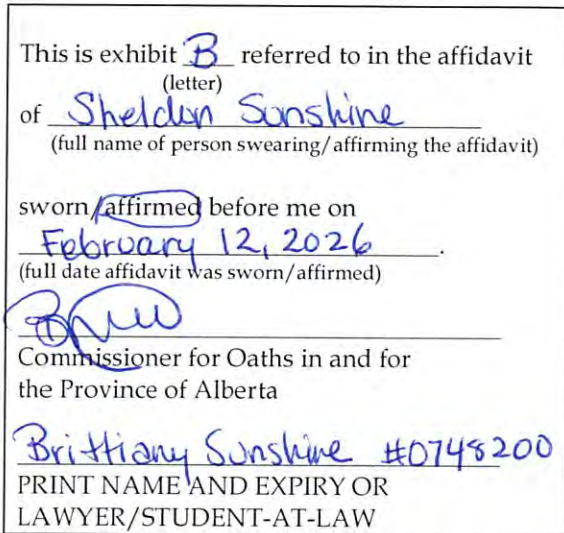 This is exhibit B referred to in the affidavit
(letter)
of Sheldon Sunshine
(full name of person swearing/affirming the affidavit)
sworn/affirmed before me on
February 12, 2026.
(full date affidavit was sworn/affirmed)
Commissioner for Oaths in and for
the Province of Alberta
Brittiany Sunshine #0748200
PRINT NAME AND EXPIRY OR
LAWYER/STUDENT-AT-LAW